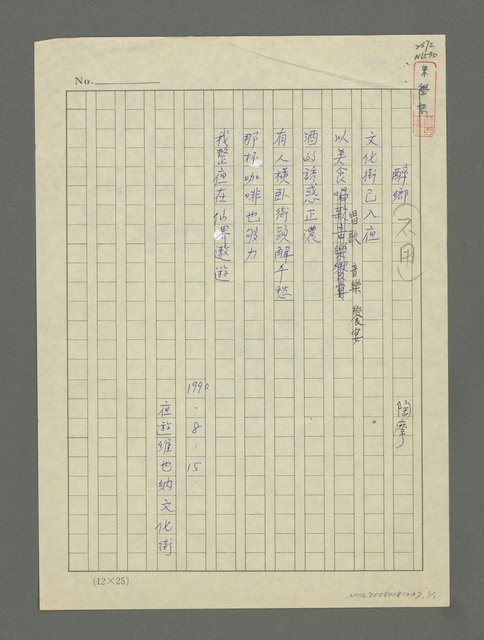 2572
N1530
No.
醉鄉
不用
陶摩
文化街已入夜
以美食唱歌音樂饗宴
唱歌 音樂 饗宴
酒的誘惑正濃
有人橫臥街頭解千愁
那杯咖啡也够力
我整夜在仙界遨遊
1990.8.15
夜遊維也納文化街
(12×25)